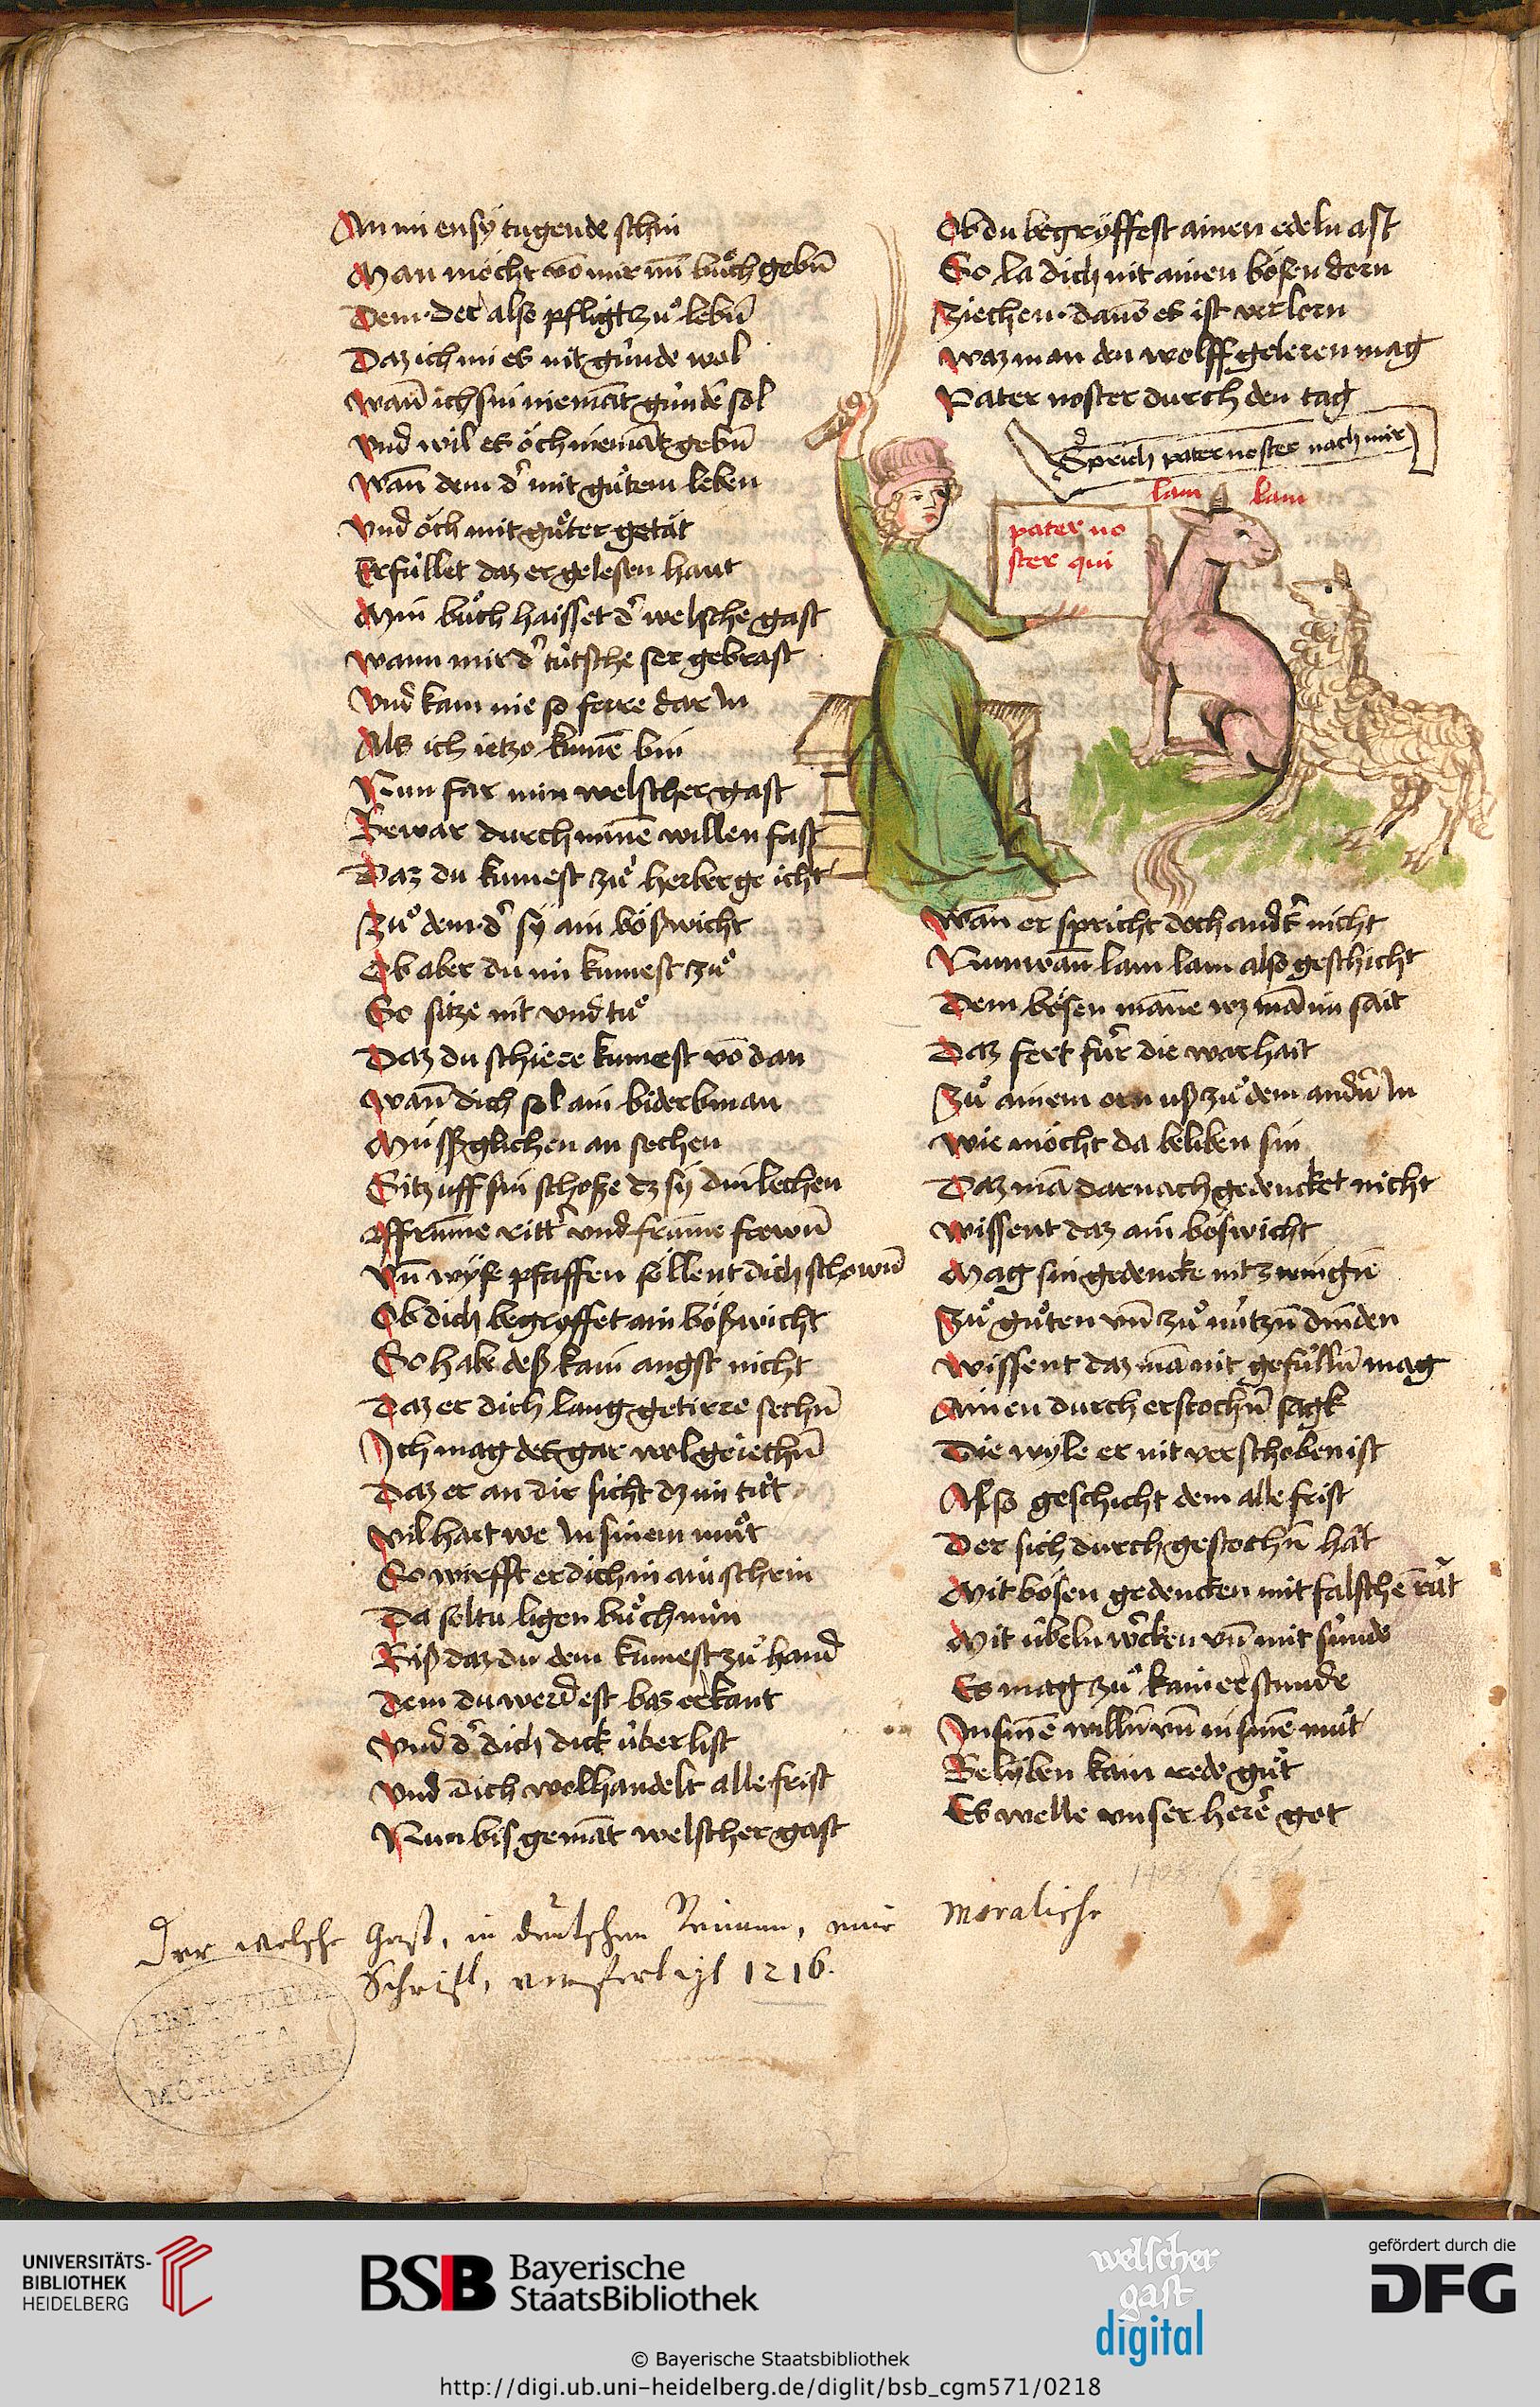 An im ensy tugende schin
Man möcht vō mir mī buͦch gebn̄
Dem der also pfligt zuͦ lebn̄
Daz ich im es nit gúnde wol
Wan̄ ich sin niemāt gúnden sol
Vnd wil es öch niemāt gebn̄
Wan̄ dem d' mit guͦtem leben
Vnd öch mit guͦter getät
Erfúllet daz er gelesen haut
Min buͦch haisset d' welsche gast
Wann mir d' tútsche ser gebrast
Vnd kam nie so ferre dar in
Als ich ietzo kumē bin
Nun far min welscher gast
Bewar durch minē willen fast
Daz du kumest zuͦ herberge icht
Zuͦ dem d' sy ain bößwicht
Ob aber du im kumest zuͦ
So sitze nit vnd tuͦ
Daz du schiere kumest vō dan
Wan̄ dich sol ain biderbman
Müssglichen an sechen
Sitz uff sin schoße dz sy din lechen
Ffrum̄e ritt' vnd frum̄e frown̄
Vn̄ wyse pfaffen söllent dich schown̄
Ob dich begryffet ain bößwicht
So habe deß kain angst nicht
Daz er dich lang getirre sechn̄
Ich mag des gar wol geiechn̄
Daz er an dir sicht dz im tuͦt
Vil hart we in sinem muͦt
So wirfft er dich in ain schrin
Da soltu ligen buͦch min
Biß daz du dem kumest zuͦ hand
Dem du werdest baz erkant
Vnd d' dich dick úberlist
Vnd dich wol handelt alle frist
Nun bis gemāt welscher gast
Ob du begryffest ainen edeln ast
So la dich nit ainen bösen dorn
Ziechen dan̄ es ist verlorn
Waz man den wolff geleren mag
Pater noster durch den tag
Sprich pater noster nach mir
lam lam
pater no
ster qui
Wan er spricht doch and's nicht
Nun wan̄ lam lam also geschicht
Dem bösen māne wz mā im sait
Daz fert für die warhait
Zuͦ ainem orn uß zuͦ dem andn̄ in
Wie möcht da beliben sin
Daz mā darnach gedencket nicht
Wissent daz ain böswicht
Mag sin gedencke nit zwingē
Zuͦ guͦten vn̄ zuͦ nútzn̄ dingen
Wissent daz mā nit gefülln̄ mag
Ainen durch erstochn̄ sagk
Die wyle er nit verschoben ist
Also geschicht dem alle frist
Der sich durch gestochn̄ hät
Mit bösen gedencken mit falschē rät
Mit úbeln w'cken vn̄ mit súnde
Es mag zuͦ kainer stunde
In sinē willn̄ vn̄ in sinē muͦt
Belyben kain rede guͦt
Es welle vnser herē got
Der welsche Gast, in deutschen Reimen, eine moralische
Schrift, verfertigt 1216.
BIBLIOTHECA
REGIA
MONACENSIS
UNIVERSITÄTS-
BIBLIOTHEK
HEIDELBERG
BSB Bayerische
StaatsBibliothek
welscher
gast
digital
gefördert durch die
DFG
© Bayerische Staatsbibliothek
http://digi.ub.uni-heidelberg.de/diglit/bsb_cgm571/0218